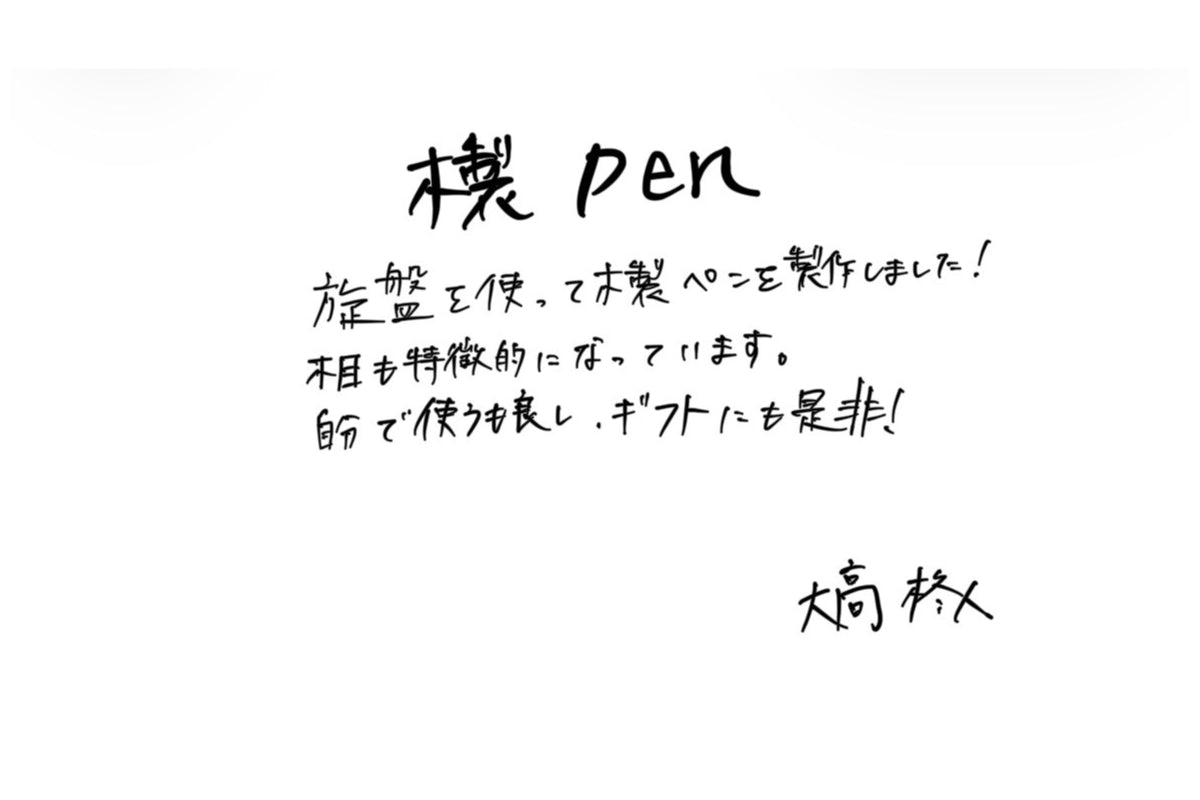 木製 pen
旋盤を使って木製ペンを製作しました!
木目も特徴的になっています。
自分で使うも良し、ギフトにも是非!
大高 柊人